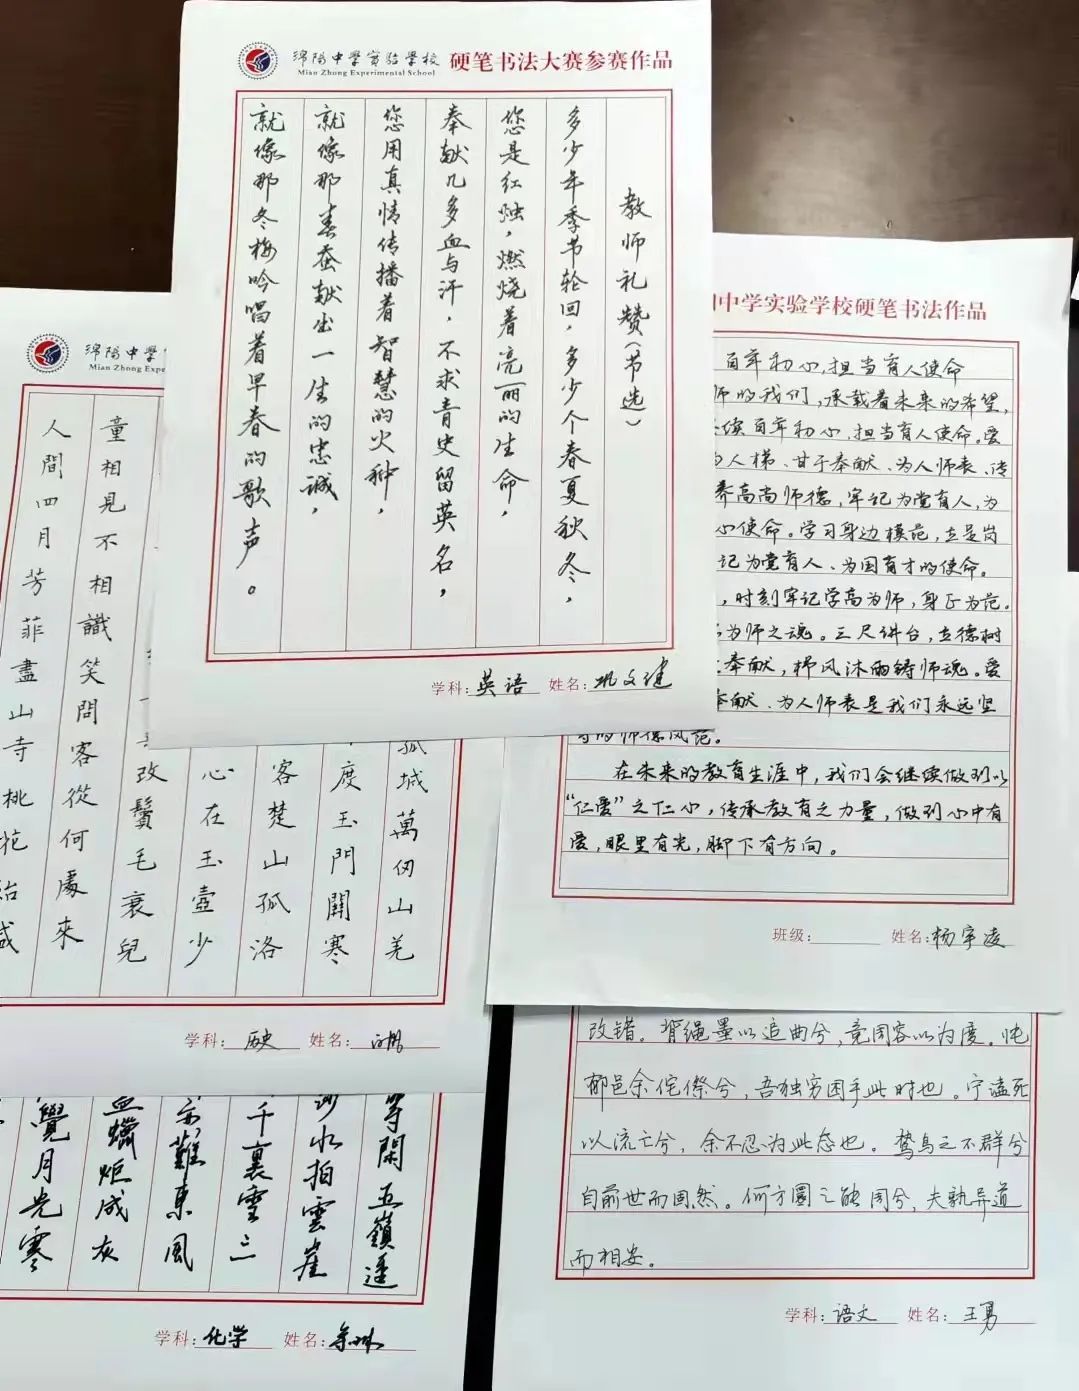 绵阳中学实验学校 硬笔书法大赛参赛作品
Mian Zhong Experimental School
教师礼赞（节选）
多少年季节轮回，多少个春夏秋冬，
您是红烛，燃烧着亮丽的生命，
奉献几多血与汗，不求青史留英名，
您用真情传播着智慧的火种，
就像那春蚕献出一生的忠诚，
就像那冬梅吟唱着早春的歌声。
学科：英语 姓名：巩文健
中学实验学校硬笔书法作品
百年初心，担当育人使命
师的我们，承载着未来的希望，
续百年初心，担当育人使命。爱
为人梯、甘于奉献、为人师表、传
养高尚师德，牢记为党育人，为
心使命。学习身边模范，立足岗
记为党育人、为国育才的使命。
，时刻牢记学高为师，身正为范。
为师之魂。三尺讲台，立德树
奉献，栉风沐雨铸师魂。爱
奉献、为人师表是我们永远坚
的师德风范。
在未来的教育生涯中，我们会继续做到以
“仁爱”之仁心，传承教育之力量，做到心中有
爱，眼里有光，脚下有方向。
班级： 姓名：杨宇凌
绵阳中学
Mian Zhong Exper
孤城萬仞山羌
度玉門關寒
客楚山孤洛
心在玉壺少
改鬢毛衰兒
童相見不相識笑問客從何處來
人間四月芳菲盡山寺桃花始盛
学科：历史 姓名：
等閑五嶺逶
沙水拍雲崖
千裏雪三
難東風
蠟炬成灰
覺月光寒
学科：化学 姓名：
改错。背绳墨以追曲兮，竞周容以为度。忳
郁邑余侘傺兮，吾独穷困乎此时也。宁溘死
以流亡兮，余不忍为此态也。鸷鸟之不群兮
自前世而固然。何方圜之能周兮，夫孰异道
而相安。
学科：语文 姓名：王勇